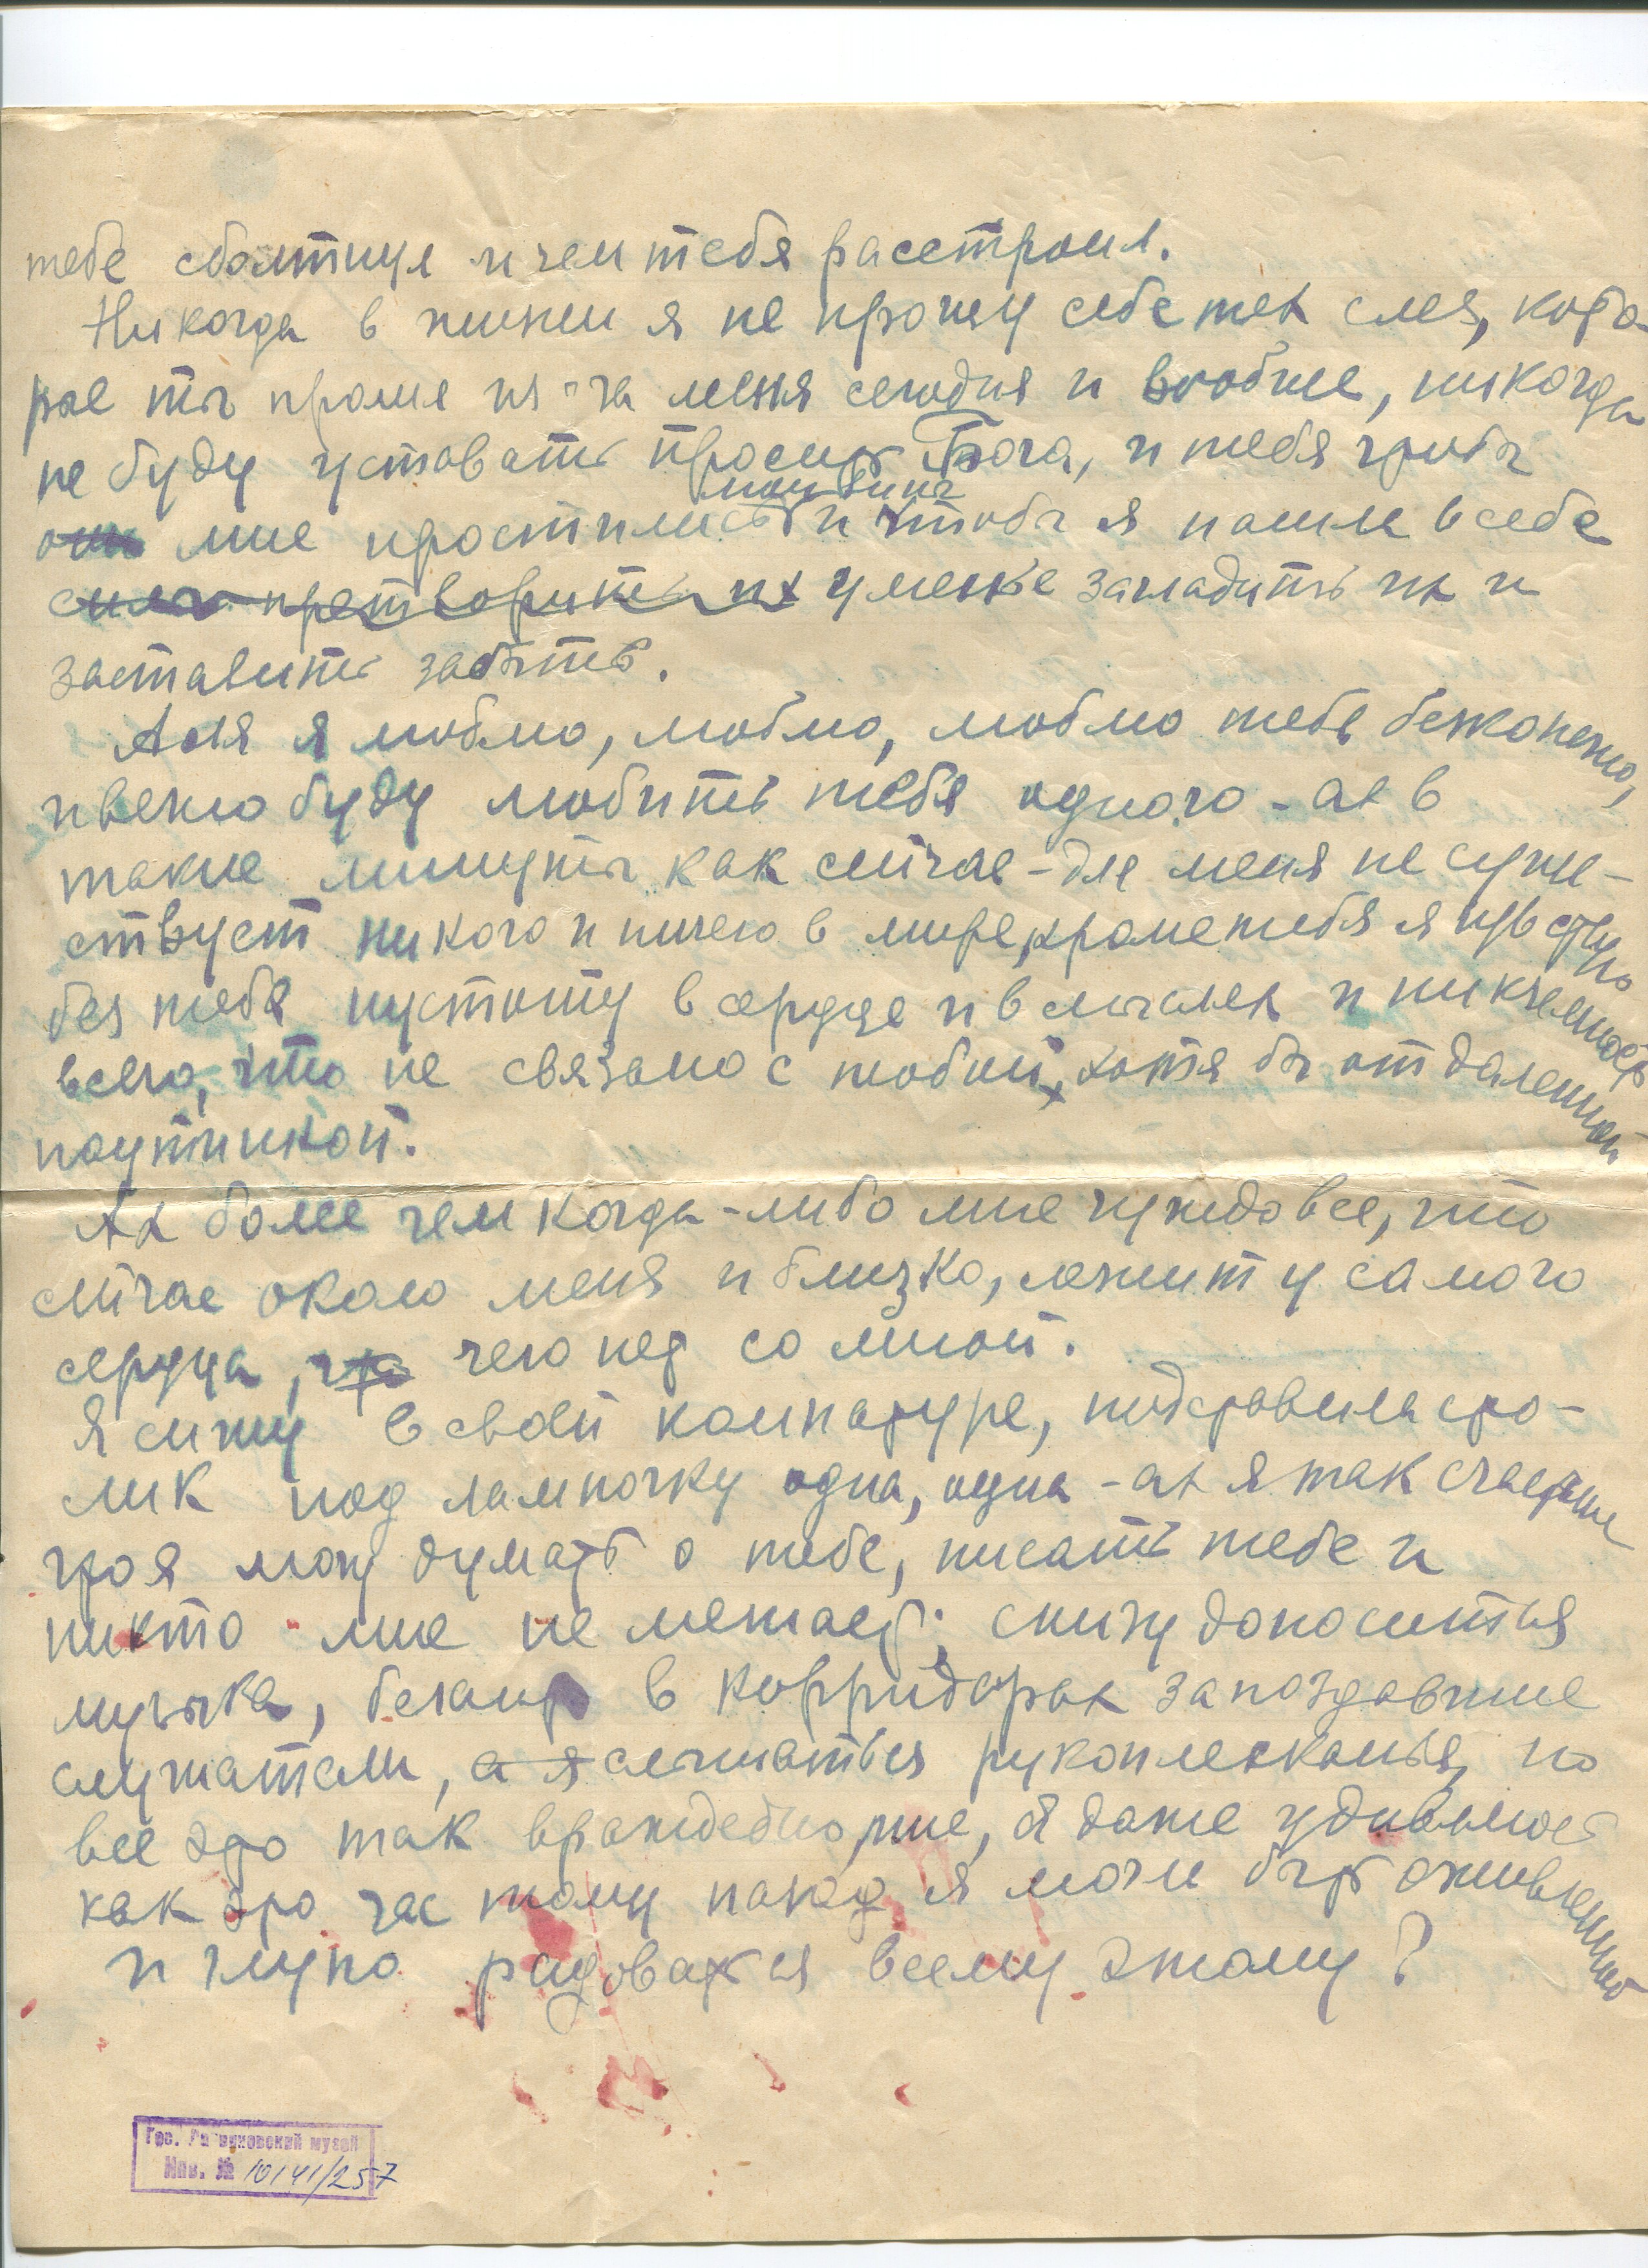 тебе сболтнул и чем тебя расстроил.
Никогда в жизни я не прощу себе тех слез, кото-
рые ты пролил из-за меня сегодня и вообще, никогда
не буду уставать просить Бога, и тебя чтобы
мои вины
они мне простились и чтобы я нашла в себе
силы претворить их уменье загладить их и
заставить забыть.
Аля я люблю, люблю, люблю тебя безконечно,
и вечно буду любить тебя одного - ах в
такие минуты как сейчас - для меня не суще-
ствует никого и ничего в мире, кроме тебя я чувствую
без тебя пустоту в сердце и в мыслях и никчемность
всего, что не связано с тобой, хотя бы отдаленной
паутинкой.
Ах более чем когда-либо мне чуждо все, что
сейчас около меня и близко, лежит у самого
сердца, что чего нет со мной.
Я сижу в своей комнатуре, подставила сто-
лик под лампочку одна, одна - ах я так счастлива
что я могу думать о тебе, писать тебе и
никто мне не мешает; снизу доносится
музыка, бегают в корридорах запоздавшие
слушатели, а я слышаться рукоплесканья, но
все это так враждебно мне, я даже удивляюсь
как это час тому назад я могла быть оживленной
и глупо радоваться всему этому?
Гос. музей
Инв. № 10141/257